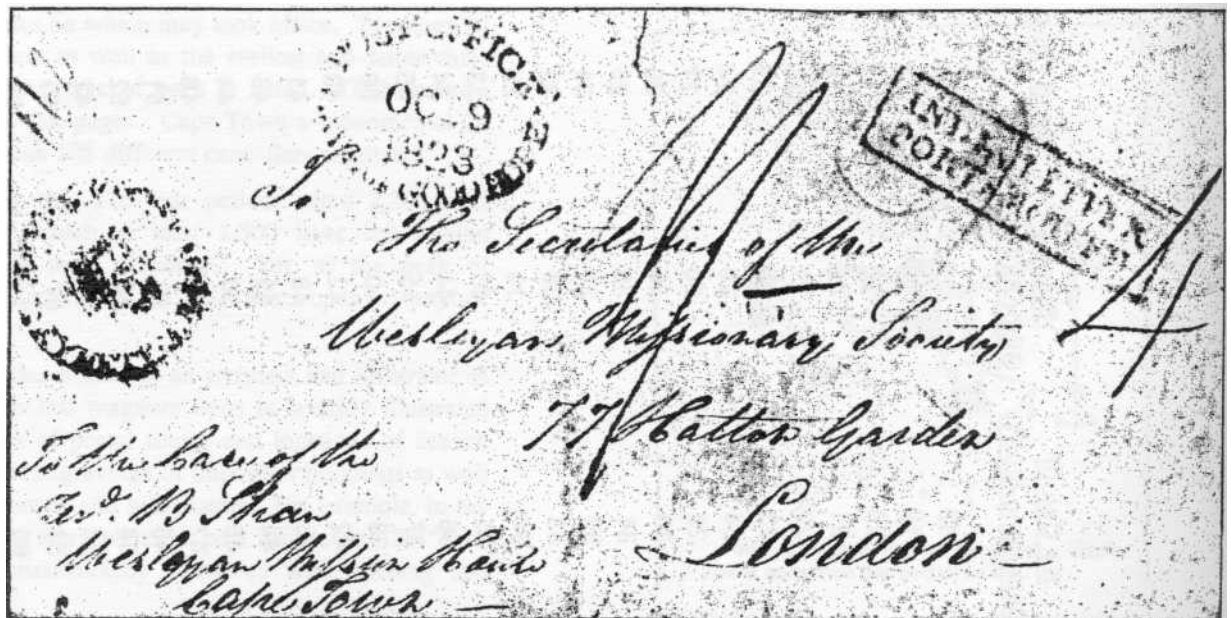 POST OFFICE
OC 9
1823
GOOD HOPE
INDIA LETTER
PORTSMOUTH
4
To
The Secretaries of the
Wesleyan Missionary Society
77 Hatton Garden
London
To the Care of the
Revd. B Shaw
Wesleyan Mission House
Cape Town